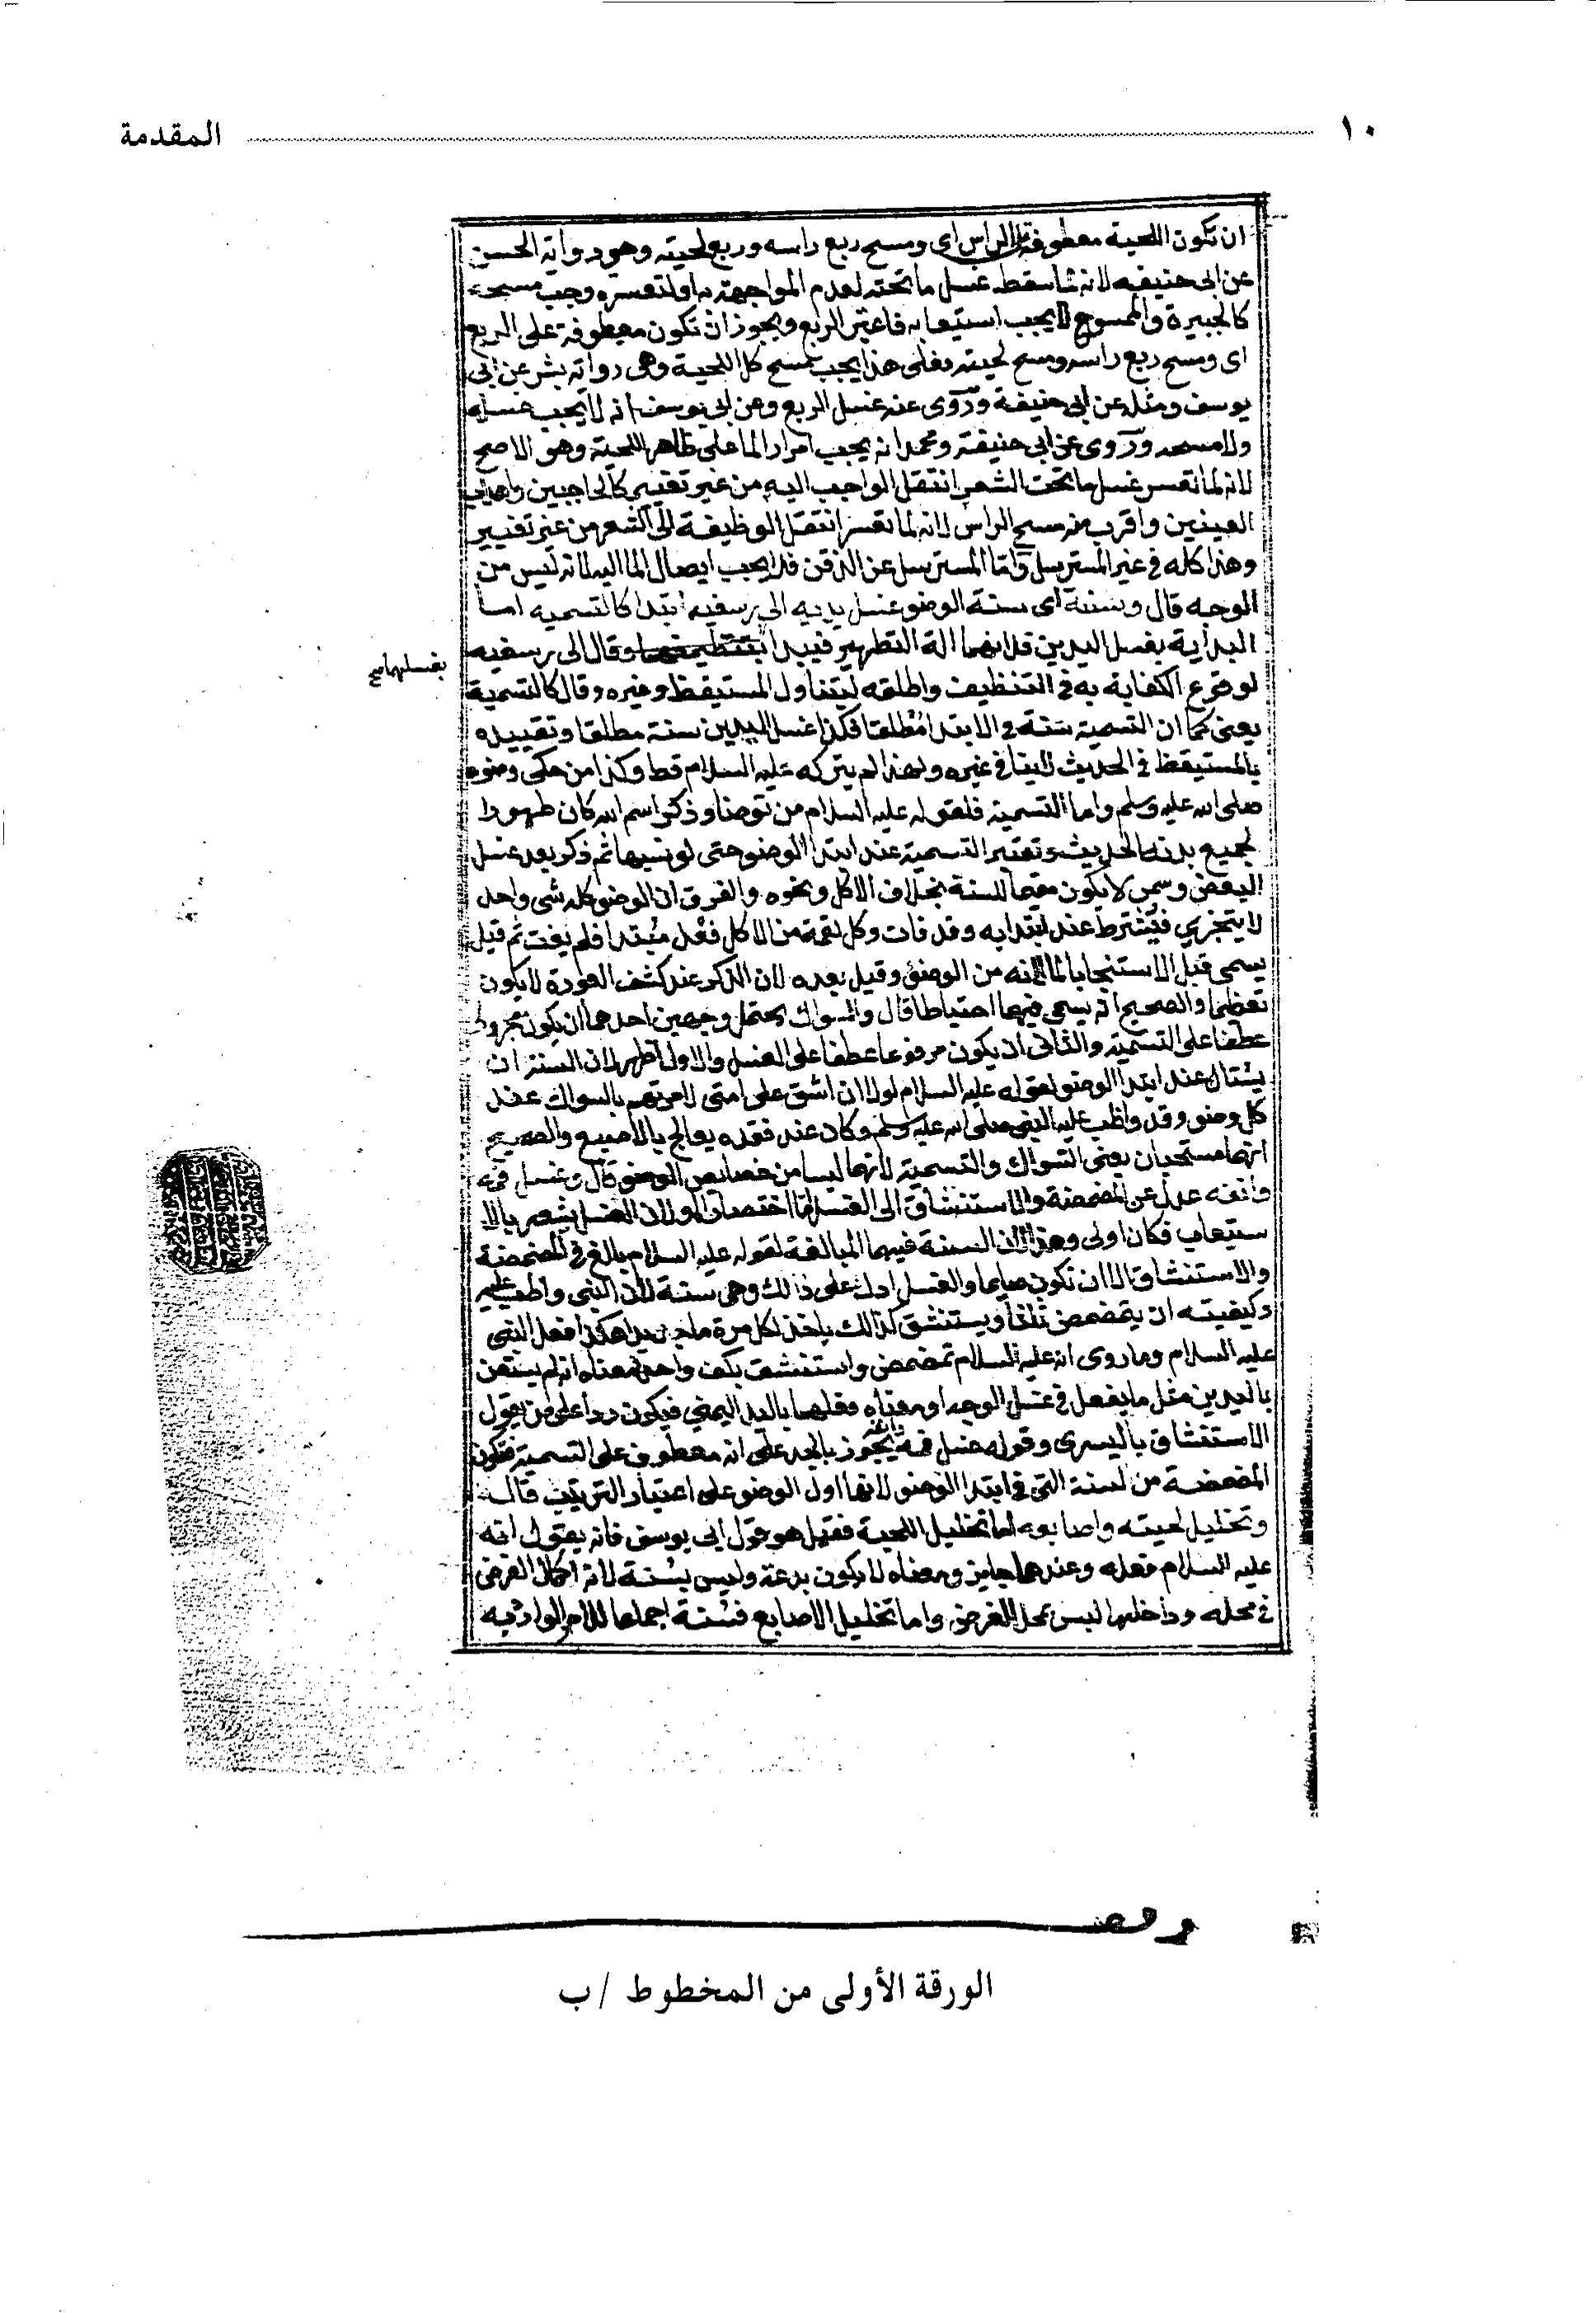 ١٠ المقدمة
ان تكون اللحية معطوفة على الراس اى ومسح ربع راسه وربع لحيته وهو رواية الحسن
عن ابى حنيفه لانه لما سقط غسل ما تحته لعدم المواجهة به او لتعسره وجب مسحه
كالجبيرة والممسوح لا يجب استيعابه فاعتبر الربع ويجوز ان تكون معطوفة على الربع
اى ومسح ربع راسه ومسح لحيته فعلى هذا يجب مسح كل اللحية وهى رواية بشر عن ابى
يوسف ومثله عن ابى حنيفة وروى عنه غسل الربع وعن ابى يوسف انه لا يجب غسله
ولا مسحه وروى عن ابى حنيفة ومحمد انه يجب امرار الما على ظاهر اللحية وهو الاصح
لانه لما تعسر غسل ما تحت الشعر انتقل الواجب اليه من غير تغيير كالحاجبين واهداب
العينين واقرب منه مسح الراس لانه لما تعسر انتقل الوظيفة الى الشعر من غير تغيير
وهذا كله فى غير المسترسل واما المسترسل عن الذقن فلا يجب ايصال الما اليه لانه ليس من
الوجه قال وسننه اى سنة الوضو غسل يديه الى رسغيه ابتدا كالتسميه اما
البداية بغسل اليدين فلانهما الة التطهير فيبدا بتنظيفهما وقال الى رسغيه
بغسلهما صح
لوقوع الكفاية به فى التنظيف واطلقه ليتناول المستيقظ وغيره وقال كالتسمية
يعنى كما ان التسمية سنة فى الابتدا مطلقا فكذا غسل اليدين سنة مطلقا وتقييده
بالمستيقظ فى الحديث لا ينافى غيره ولهذا لم يتركه عليه السلام قط وكذا من حكى وضوه
صلى الله عليه وسلم واما التسمية فلقوله عليه السلام من توضا وذكر اسم الله كان طهورا
لجميع بدنه الحديث وتعتبر التسمية عند ابتدا الوضو حتى لو نسيها ثم ذكر بعد غسل
البعض وسمى لا يكون مقيما للسنة بخلاف الاكل ونحوه والفرق ان الوضو كله شى واحد
لا يتجزى فيشترط عند ابتدايه وقد فات وكل لقمة من الاكل فعل مبتدا فلم يفت ثم قيل
يسمى قبل الاستنجا بالما لانه من الوضو وقيل بعده لان الذكر عند كشف العورة لا يكون
تعظيما والصحيح انه يسمى فيهما احتياطا قال والسواك يحتمل وجهين احدهما ان يكون مجرورا
عطفا على التسمية والثانى ان يكون مرفوعا عطفا على الغسل والاول اظهر لان السنة ان
يستاك عند ابتدا الوضو لقوله عليه السلام لولا ان اشق على امتى لامرتهم بالسواك عند
كل وضو وقد واظب عليه النبى صلى الله عليه وسلم وكان عند فقده يعالج بالاصبع والصحيح
انهما مستحبان يعنى السواك والتسمية لانهما ليسا من خصايص الوضو قال وغسل فمه
وانفه عدل عن المضمضة والاستنشاق الى الغسل اما اختصارا او لان الغسل يشعر بالا
ستيعاب فكان اولى وهذا لان السنة فيهما المبالغة لقوله عليه السلام بالغ فى المضمضة
والاستنشاق الا ان تكون صايما والغسل ادل على ذالك وهى سنة لان النبى واظب عليه
وكيفيته ان يمضمض ثلثا ويستنشق كذالك ياخذ لكل مرة ما جديدا هكذا فعل النبى
عليه السلام وما روى انه عليه السلام تمضمض واستنشق بكف واحد معناه انه لم يستعن
باليدين مثل ما يفعل فى غسل الوجه او معناه فعلهما باليد اليمنى فيكون ردا على من يقول
الاستنشاق باليسرى وقوله غسل فمه يجوز بالجر على انه معطوف على التسمية فتكون
المضمضة من لسنة التى فى ابتدا الوضو لانها اول الوضو على اعتبار الترتيب قال
وتخليل لحيته واصابعه اما تخليل اللحية فقيل هو قول ابى يوسف فانه يقول انه
عليه السلام فعله وعندهما جايز ومعناه لا يكون بدعة وليس بسنة لانه اكمال الفرض
فى محله وداخلها ليس بمحل الفرض واما تخليل الاصابع فسنة اجماعا للامر الوارد فيه
الورقة الأولى من المخطوط / ب